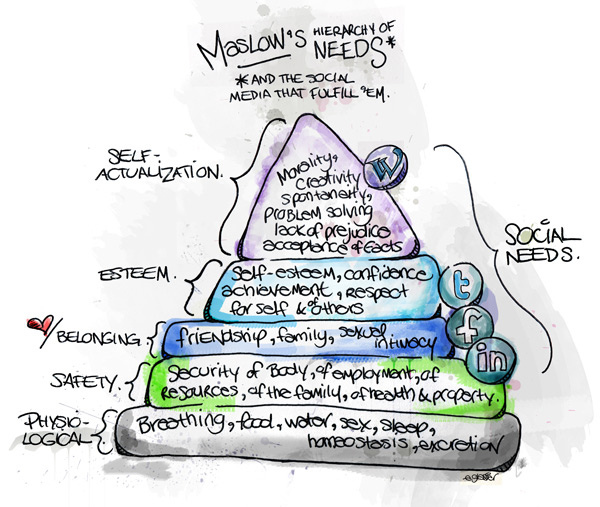 MASLOW'S HIERARCHY OF
NEEDS*
*AND THE SOCIAL
MEDIA THAT FULFILL 'EM.
SELF-
ACTUALIZATION.
Morality,
Creativity
spontaneity,
problem solving
lack of prejudice
acceptance of facts
W
SOCIAL
NEEDS.
ESTEEM.
Self-esteem, confidence
achievement, respect
for self & of others
t
f
in
BELONGING.
friendship, family, sexual
intimacy
SAFETY.
Security of Body, of employment, of
resources, of the family, of health & property.
PHYSIO-
LOGICAL
Breathing, food, water, sex, sleep,
homeostasis, excretion